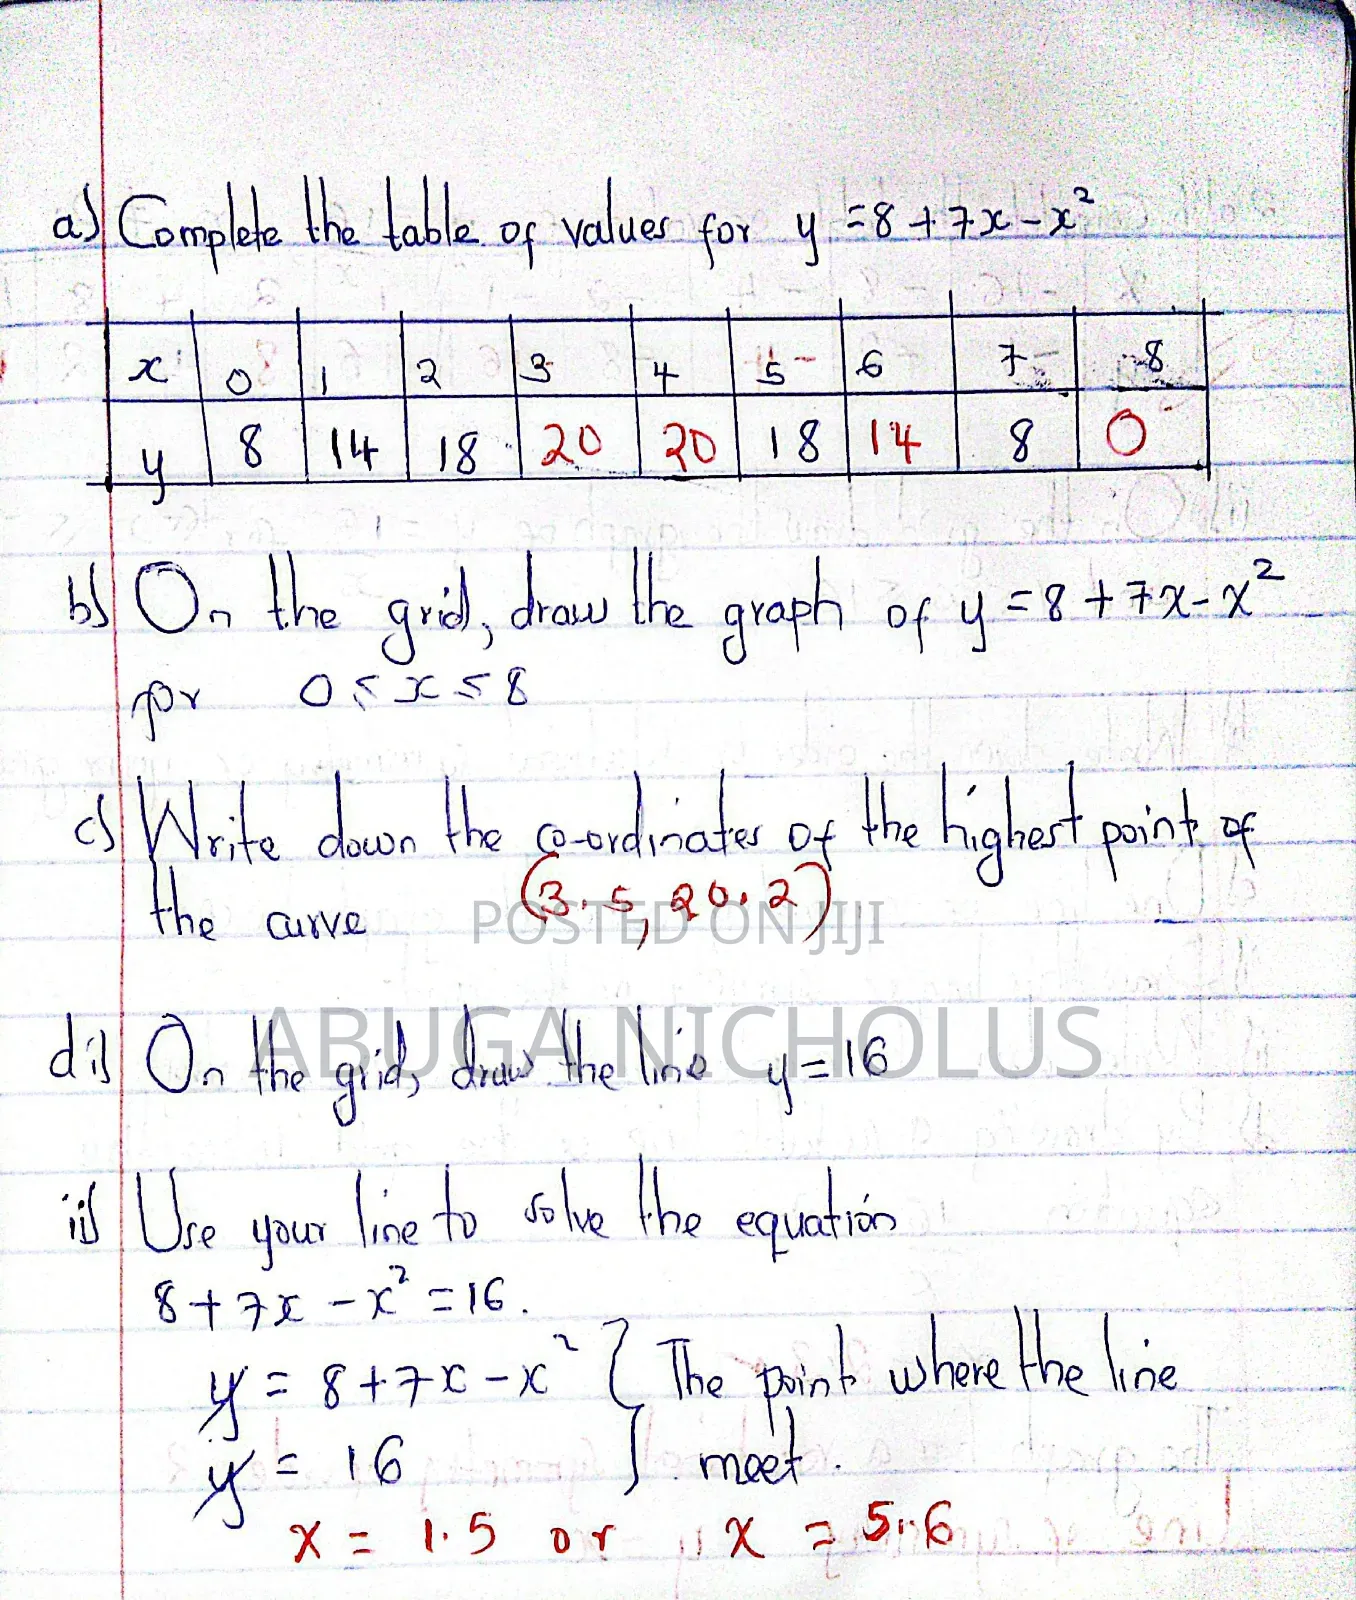 a) Complete the table of values for y = 8 + 7x - x²
x 0 1 2 3 4 5 6 7 8
y 8 14 18 20 20 18 14 8 0
b) On the grid, draw the graph of y = 8 + 7x - x²
for 0 ≤ x ≤ 8
c) Write down the co-ordinates of the highest point of
the curve (3.5, 20.2)
POSTED ON JIJI
ABUGA NICHOLUS
di) On the grid, draw the line y = 16
ii) Use your line to solve the equation
8 + 7x - x² = 16.
y = 8 + 7x - x² } The point where the line
y = 16 } meet.
x = 1.5 or x = 5.6